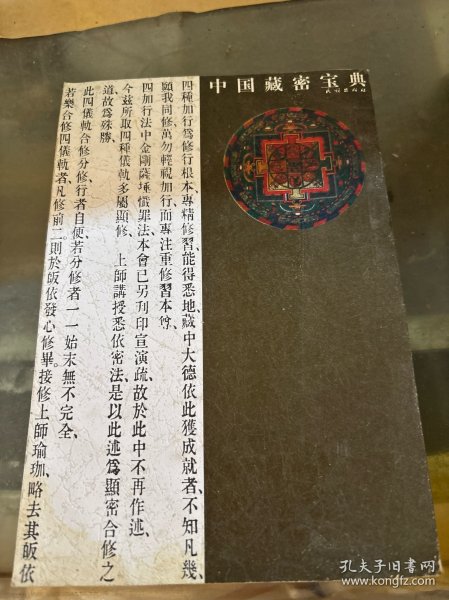 中国藏密宝典
四種加行為修行根本、專精修習、能得悉地、藏中大德依此獲成就者、不知凡幾、
願我同修、萬勿輕視加行、而專注重修習本尊、
四加行法中金剛薩埵懺罪法、本會已另刊印宣演疏、故於此中不再作述、
今茲所取四種儀軌、多屬顯修、上師講授悉依密法、是以此述為顯密合修之
道、故為殊勝、
此四儀軌合修分修、行者自便、若分修者一一始末無不完全、
若樂合修四儀軌者、凡修前二則於皈依發心修畢、接修上師瑜珈、略去其皈依
孔夫子旧书网
www.kongfz.com